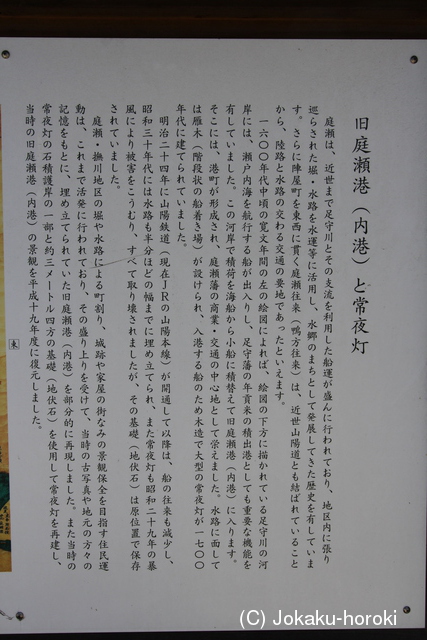 旧庭瀬港（内港）と常夜灯
庭瀬は、近世まで足守川とその支流を利用した船運が盛んに行われており、地区内に張り
巡らされた堀・水路を水運等に活用し、水郷のまちとして発展してきた歴史を有していま
す。さらに陣屋町を東西に貫く庭瀬往来（鴨方往来）は、近世山陽道とも結ばれていること
から、陸路と水路の交わる交通の要地であったといえます。
一六〇〇年代中頃の寛文年間の左の絵図によれば、絵図の下方に描かれている足守川の河
岸には、瀬戸内海を航行する船が出入りし、足守藩の年貢米の積出港としても重要な機能を
有していました。この河岸で積荷を海船から小船に積替えて旧庭瀬港（内港）に入ります。
そこには、港町が形成され、庭瀬藩の商業・交通の中心地として栄えました。水路に面して
は雁木（階段状の船着き場）が設けられ、入港する船のため木造で大型の常夜灯が一七〇〇
年代に建てられていました。
明治二十四年に山陽鉄道（現在ＪＲの山陽本線）が開通して以降は、船の往来も減少し、
昭和三十年代には水路も半分ほどの幅までに埋め立てられ、また常夜灯も昭和二十九年の暴
風により被害をこうむり、すべて取り壊されましたが、その基礎（地伏石）は原位置で保存
されていました。
庭瀬・撫川地区の堀や水路による町割り、城跡や家屋の街なみの景観保全を目指す住民運
動は、これまで活発に行われており、その盛り上りを受けて、当時の古写真や地元の方々の
記憶をもとに、埋め立てられていた旧庭瀬港（内港）を部分的に再現しました。また当時の
常夜灯の石積護岸の一部と約三メートル四方の基礎（地伏石）を使用して常夜灯を再建し、
当時の旧庭瀬港（内港）の景観を平成十九年度に復元しました。
東
(C) Jokaku-horoki